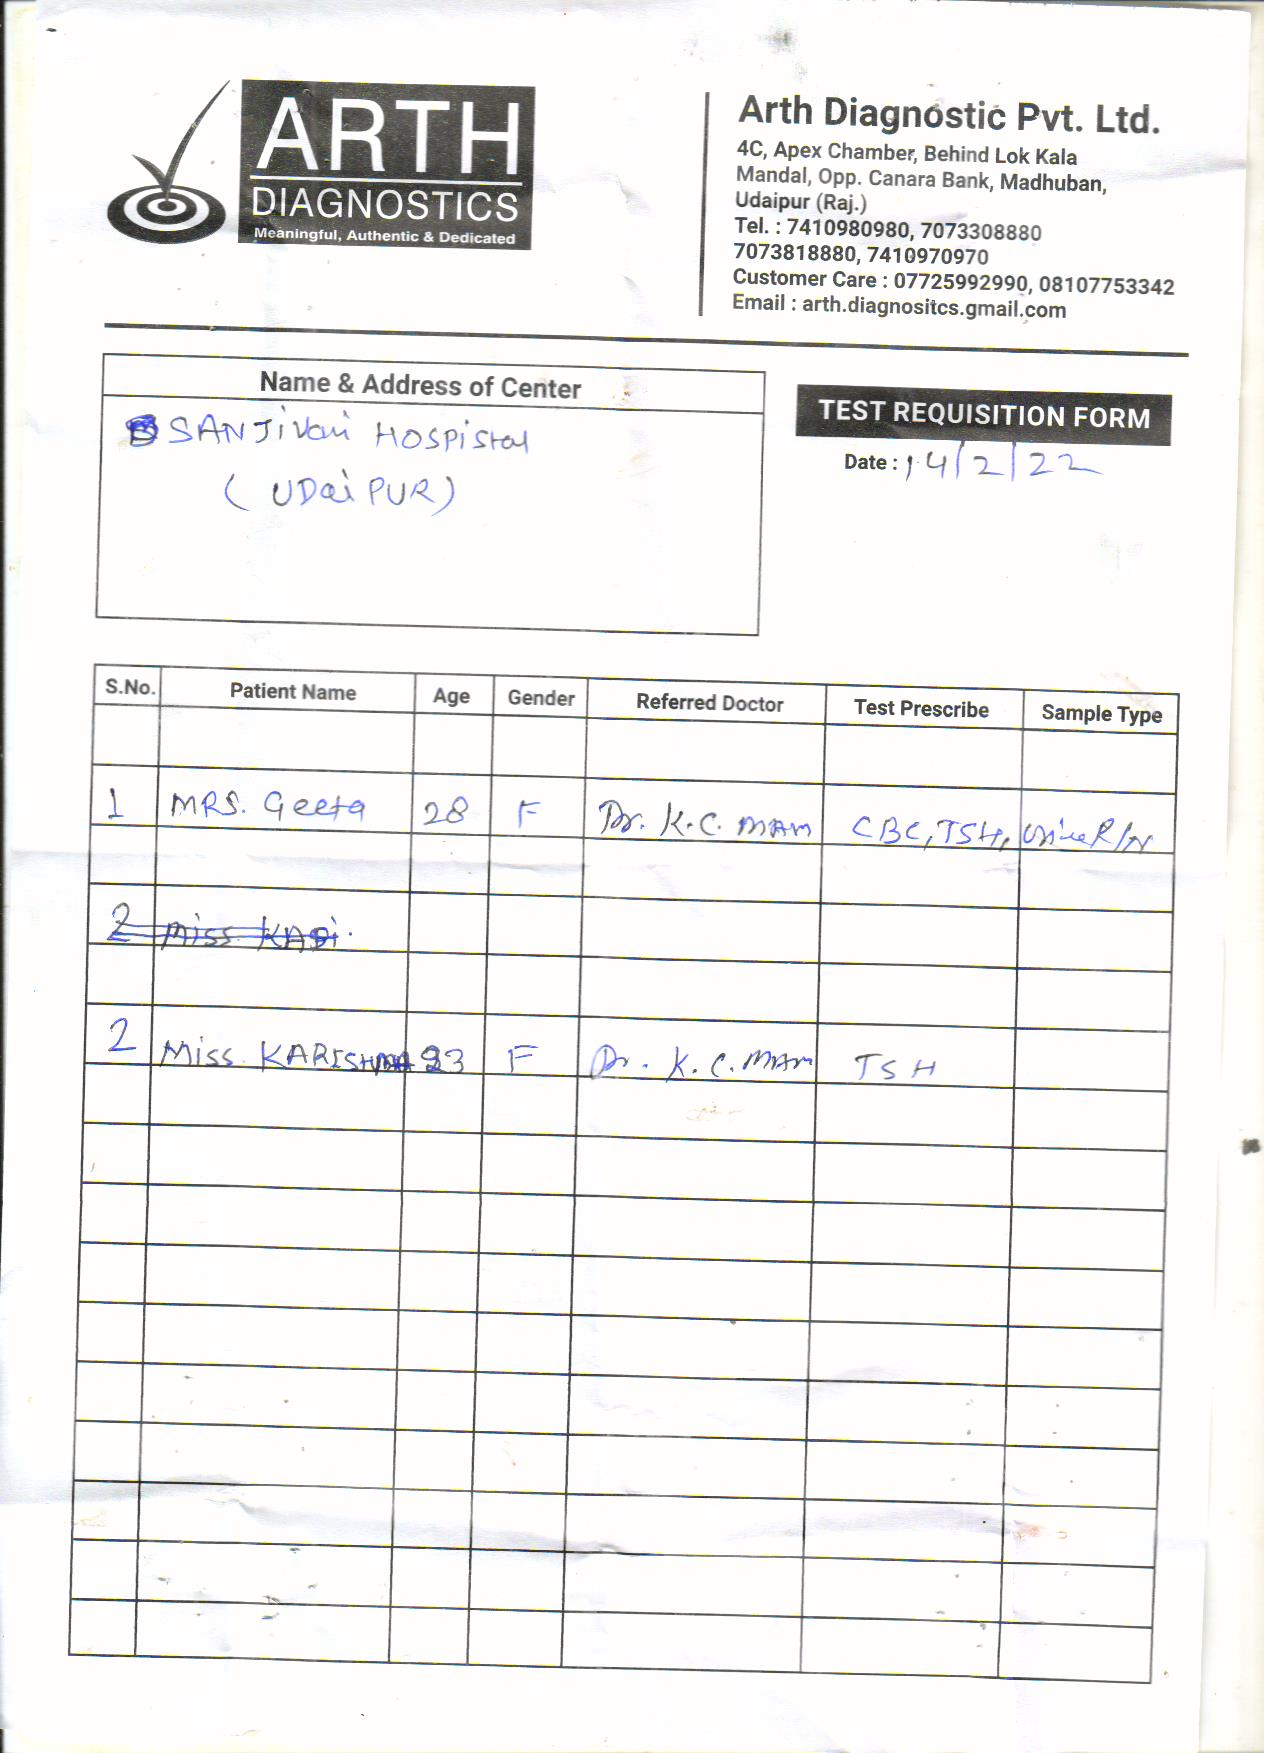 ARTH
DIAGNOSTICS
Meaningful, Authentic & Dedicated
Arth Diagnostic Pvt. Ltd.
4C, Apex Chamber, Behind Lok Kala
Mandal, Opp. Canara Bank, Madhuban,
Udaipur (Raj.)
Tel. : 7410980980, 7073308880
7073818880, 7410970970
Customer Care : 07725992990, 08107753342
Email : arth.diagnositcs.gmail.com
Name & Address of Center
SANJiVani HOSPiStal
( UDaiPUR)
TEST REQUISITION FORM
Date : 14/2/22
S.No. Patient Name Age Gender Referred Doctor Test Prescribe Sample Type
1 MRS. Geeta 28 F Dr. K.C. MAM CBC, TSH, Urine R/M
2 Miss
2 Miss KARISHMA 23 F Dr. K.C. MAM TSH